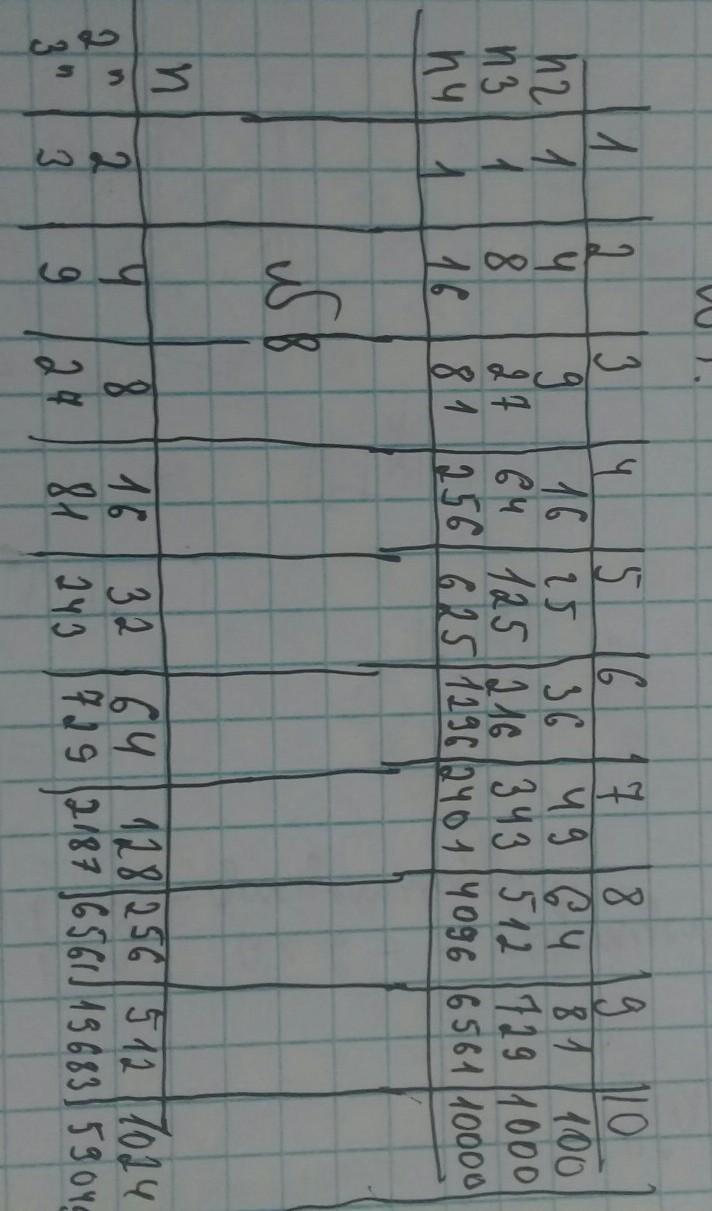 1 2 3 4 5 6 7 8 9 10
n2 1 4 9 16 25 36 49 64 81 100
n3 1 8 27 64 125 216 343 512 729 1000
n4 1 16 81 256 625 1296 2401 4096 6561 10000
№8
n
2ⁿ 2 4 8 16 32 64 128 256 512 1024
3ⁿ 3 9 27 81 243 729 2187 6561 19683 59049